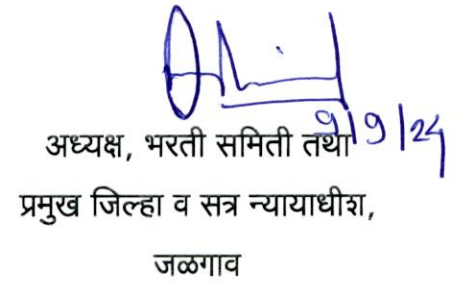 9/9/24
अध्यक्ष, भरती समिती तथा
प्रमुख जिल्हा व सत्र न्यायाधीश,
जळगाव